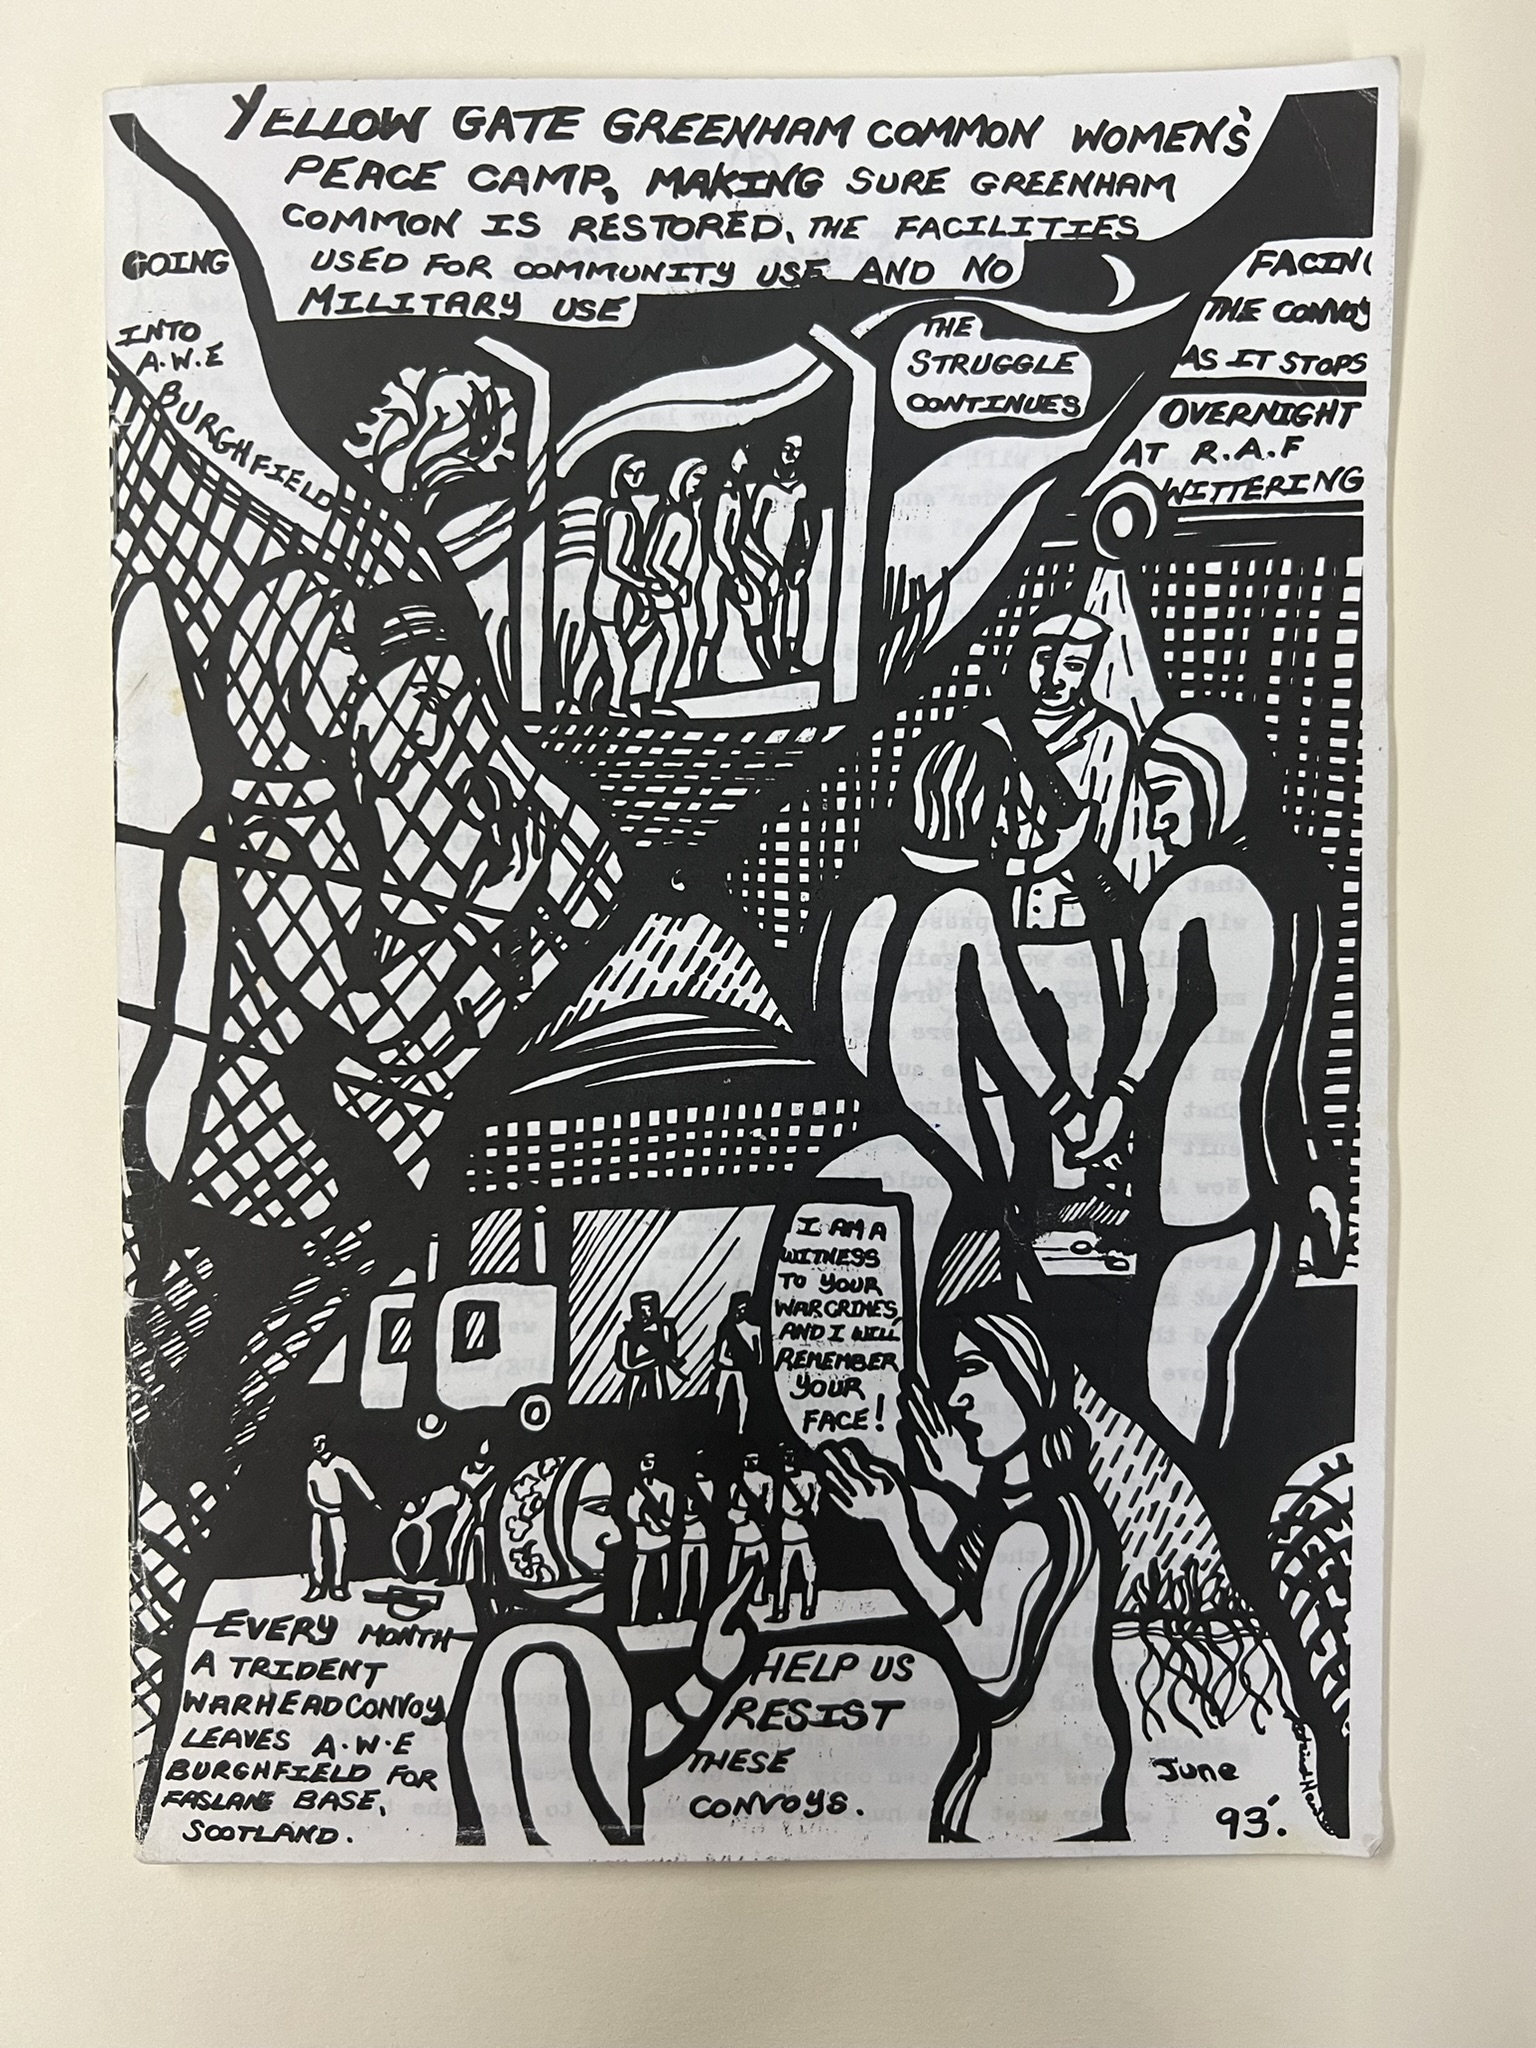 YELLOW GATE GREENHAM COMMON WOMEN'S
PEACE CAMP, MAKING SURE GREENHAM
COMMON IS RESTORED, THE FACILITIES
USED FOR COMMUNITY USE AND NO
MILITARY USE
GOING
INTO
A.W.E
BURGHFIELD
THE
STRUGGLE
CONTINUES
FACING
THE CONVOY
AS IT STOPS
OVERNIGHT
AT R.A.F
WITTERING
I AM A
WITNESS
TO YOUR
WARCRIMES,
AND I WILL
REMEMBER
YOUR
FACE!
EVERY MONTH
A TRIDENT
WARHEAD CONVOY
LEAVES A.W.E
BURGHFIELD FOR
FASLANE BASE,
SCOTLAND.
HELP US
RESIST
THESE
CONVOYS.
June
93'.